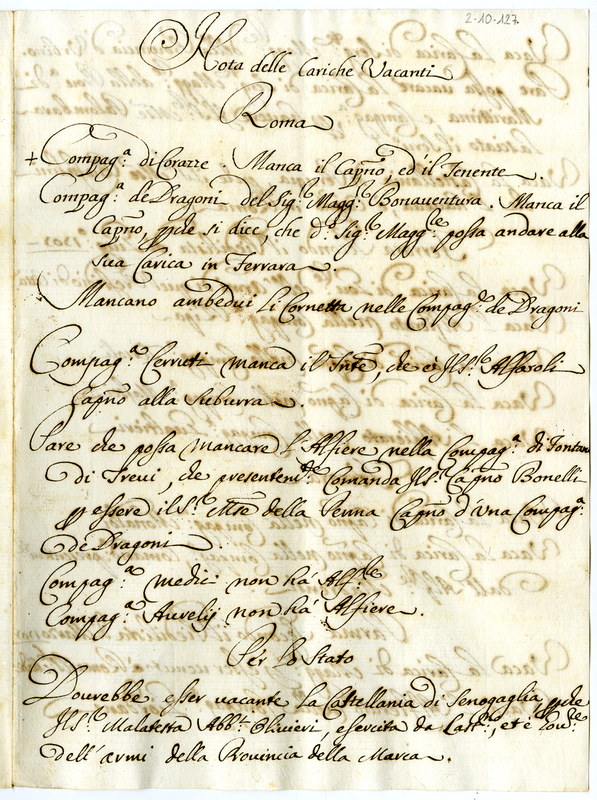 2-10-127.
Nota delle Cariche Vacanti
Roma
+ Compag.ª di Corazze. Manca il Capño, ed il Tenente.
Compag.ª de Dragoni del Sig.re Magg.re Bonaventura. Manca il
Capño, pche si dice, che d.º Sig.re Magg.re possa andare alla
sua Carica in Ferrara.
Mancano ambedui li Cornetta nelle Compag.e de Dragoni
Compag.ª Cerruti manca il Tnte, che è Il S.r Alfaroli
Capño alla Suburra.
Pare che possa mancare l'Alfiere nella Compag.ª di Fontana
di Trevi, che presentem.te Comanda Il S.r Capño Bonelli
p essere il S.r Mse della Penna Capño d'una Compag.ª
de Dragoni.
Compag.ª medici non há Alf.re
Compag.ª Aurelij non há Alfiere.
Per lo Stato
Dourebbe esser vacante la Castellania di Senogaglia, pche
Il S.r Malatesta Abb.ti Olivieri, esercita da Cast.no, et è Gov.re
dell'armi della Provincia della Marca.